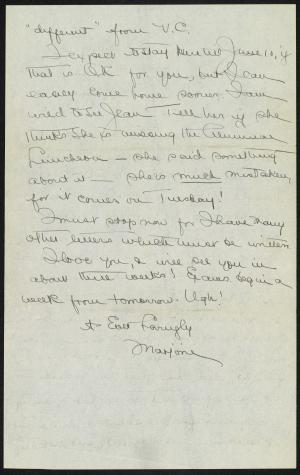 "different" from V.C.
I expect to stay here til June 10, if
that is OK for you, but I can
easily come home sooner. I am
to see Jean. Tell her if she
thinks she is missing the Alumnae
Luncheon — she said something
about it — she is much mistaken,
for it comes on Tuesday!
I must stop now for I have many
other letters which must be written
I love you, & will see you in
about three weeks! Exams begin a
week from tomorrow. Ugh!
Marjorie